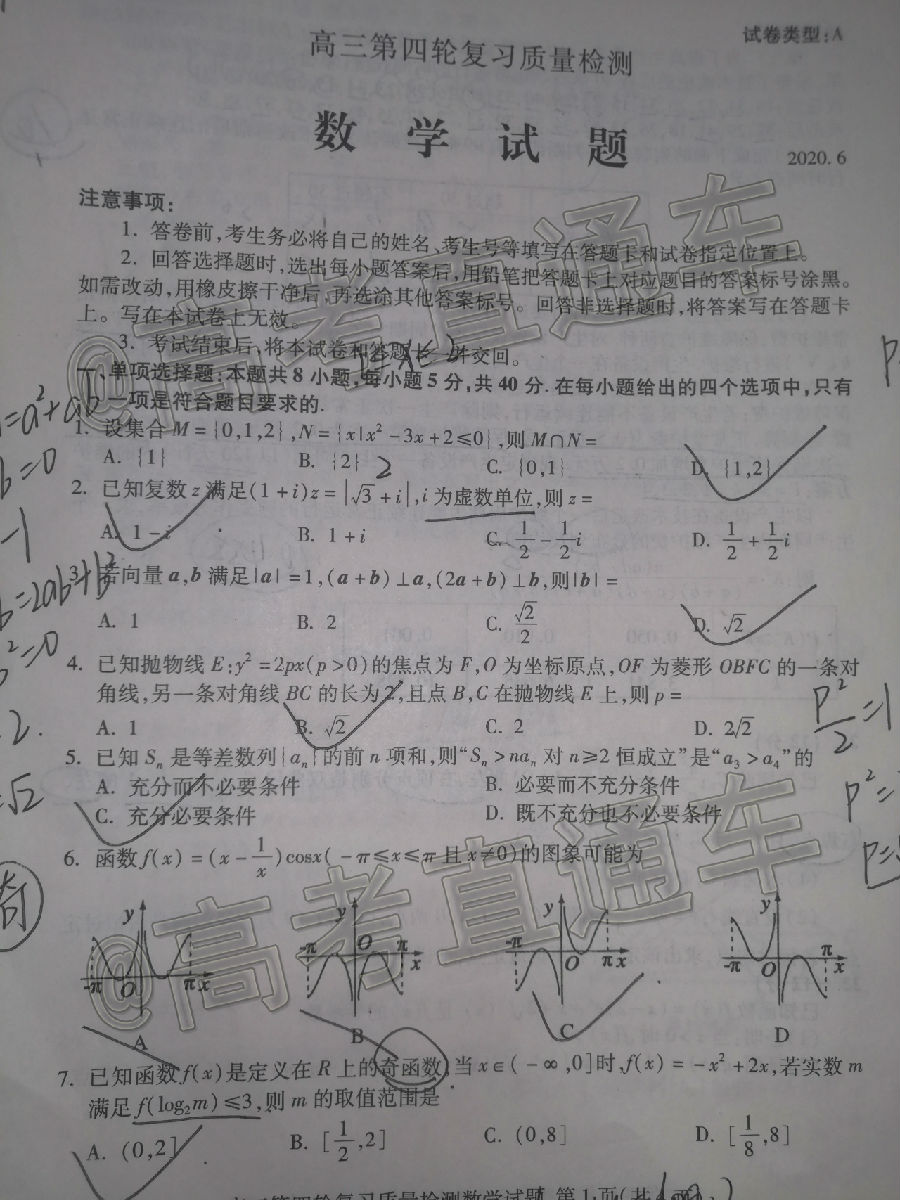 试卷类型:A
高三第四轮复习质量检测
数 学 试 题
2020.6
注意事项:
1. 答卷前,考生务必将自己的姓名,考生号等填写在答题卡和试卷指定位置上。
2. 回答选择题时,选出每小题答案后,用铅笔把答题卡上对应题目的答案标号涂黑。
如需改动,用橡皮擦干净后,再选涂其他答案标号。回答非选择题时,将答案写在答题卡
上。写在本试卷上无效。
3. 考试结束后,将本试卷和答题卡一并交回。
1≤x≤2
一、单项选择题:本题共8小题,每小题5分,共40分.在每小题给出的四个选项中,只有
一项是符合题目要求的.
=a²+ab
1. 设集合M={0,1,2},N={x|x²-3x+2≤0},则M∩N=
b=0
A. {1} B. {2} C. {0,1} D. {1,2}
2
2. 已知复数z满足(1+i)z=|√3+i|,i为虚数单位,则z=
-1
A. 1-i B. 1+i C. 1/2-1/2i D. 1/2+1/2i
b=2ab+b²
3. 若向量a,b满足|a|=1,(a+b)⊥a,(2a+b)⊥b,则|b|=
²=0
A. 1 B. 2 C. √2/2 D. √2
4. 已知抛物线E:y²=2px(p>0)的焦点为F,O为坐标原点,OF为菱形OBFC的一条对
角线,另一条对角线BC的长为2,且点B,C在抛物线E上,则p=
A. 1 B. √2 C. 2 D. 2√2
P²/2=1
2
5. 已知Sₙ是等差数列{aₙ}的前n项和,则“Sₙ>naₙ对n≥2恒成立”是“a₃>a₄”的
A. 充分而不必要条件 B. 必要而不充分条件
C. 充分必要条件 D. 既不充分也不必要条件
=√2
P²=
6. 函数f(x)=(x-1/x)cosx(-π≤x≤π且x≠0)的图象可能为
P=
奇
y y y y
-π O π x
-π O π x
-π O π x
-π O π x
A B C D
7. 已知函数f(x)是定义在R上的奇函数,当x∈(-∞,0]时,f(x)=-x²+2x,若实数m
满足f(log₂m)≤3,则m的取值范围是
A. (0,2] B. [1/2,2] C. (0,8] D. [1/8,8]
@高考直通车
@高考直通车